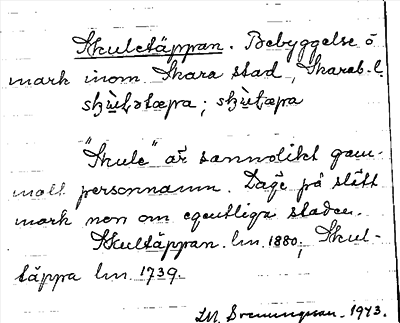 Skuletäppan. Bebyggelse å
mark inom Skara stad, Skarab. l.
skùlətæpa; skùlæpa
"Skule" är sannolikt gam-
malt personnamn. Läge på slätt
mark non om egentliga staden.
Skultäppan. lm. 1880; Skul-
täppa lm. 1739.
1943.